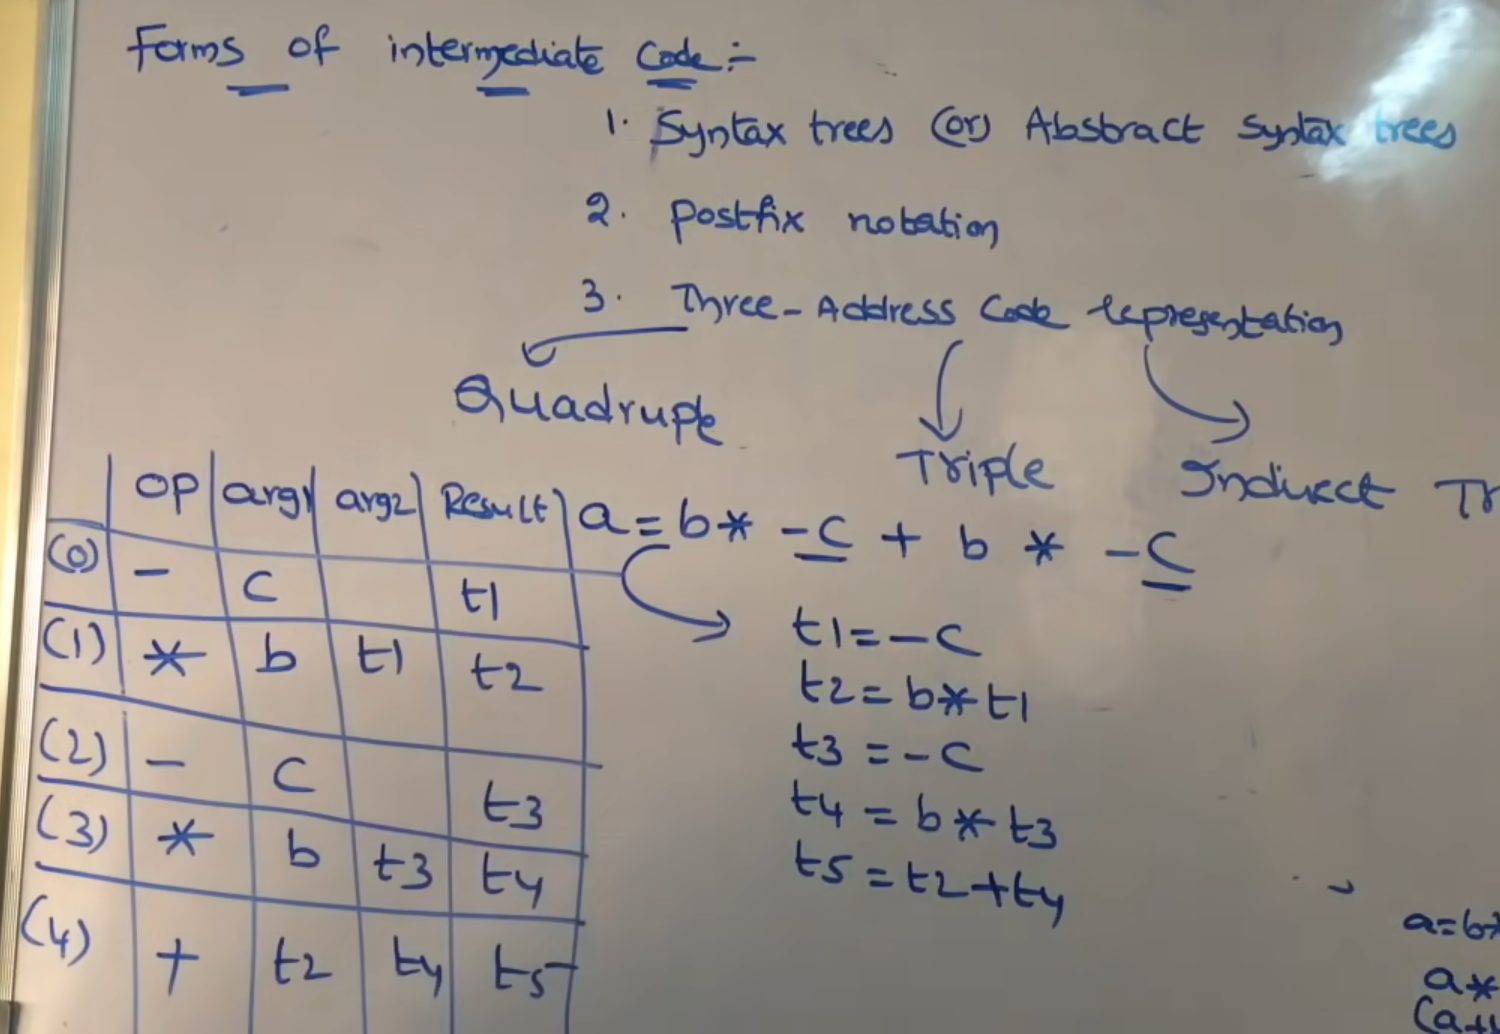 Forms of intermediate Code:-
1. Syntax trees (or) Abstract Syntax trees
2. Postfix notation
3. Three-Address Code representation
Quadruple
Triple
Indirect Tr
op arg1 arg2 Result
a = b * -c + b * -c
(0) - c t1
(1) * b t1 t2
(2) - c t3
(3) * b t3 t4
(4) + t2 t4 t5
t1 = -c
t2 = b * t1
t3 = -c
t4 = b * t3
t5 = t2 + t4
a=b*
a*